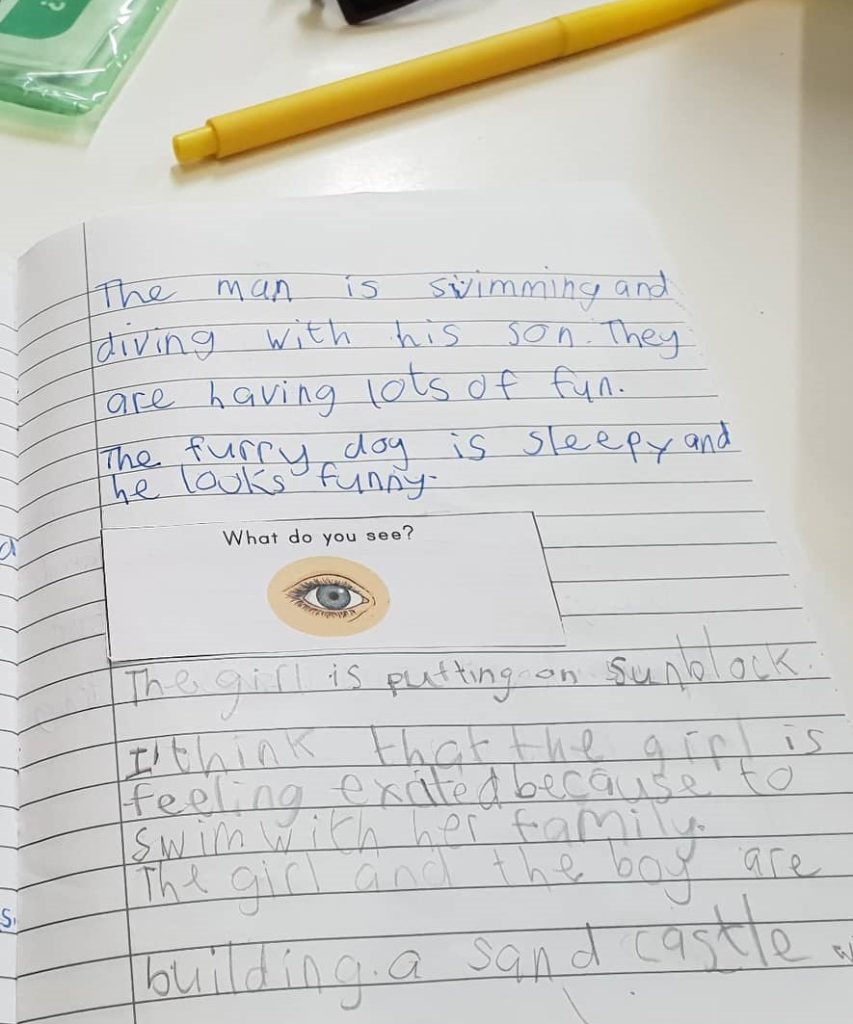 The man is swimming and
diving with his son. They
are having lots of fun.
The furry dog is sleepy and
he looks funny.
What do you see?
The girl is putting on sunblock.
I think that the girl is
feeling exated because to
swim with her family.
The girl and the boy are
building. a sand castle